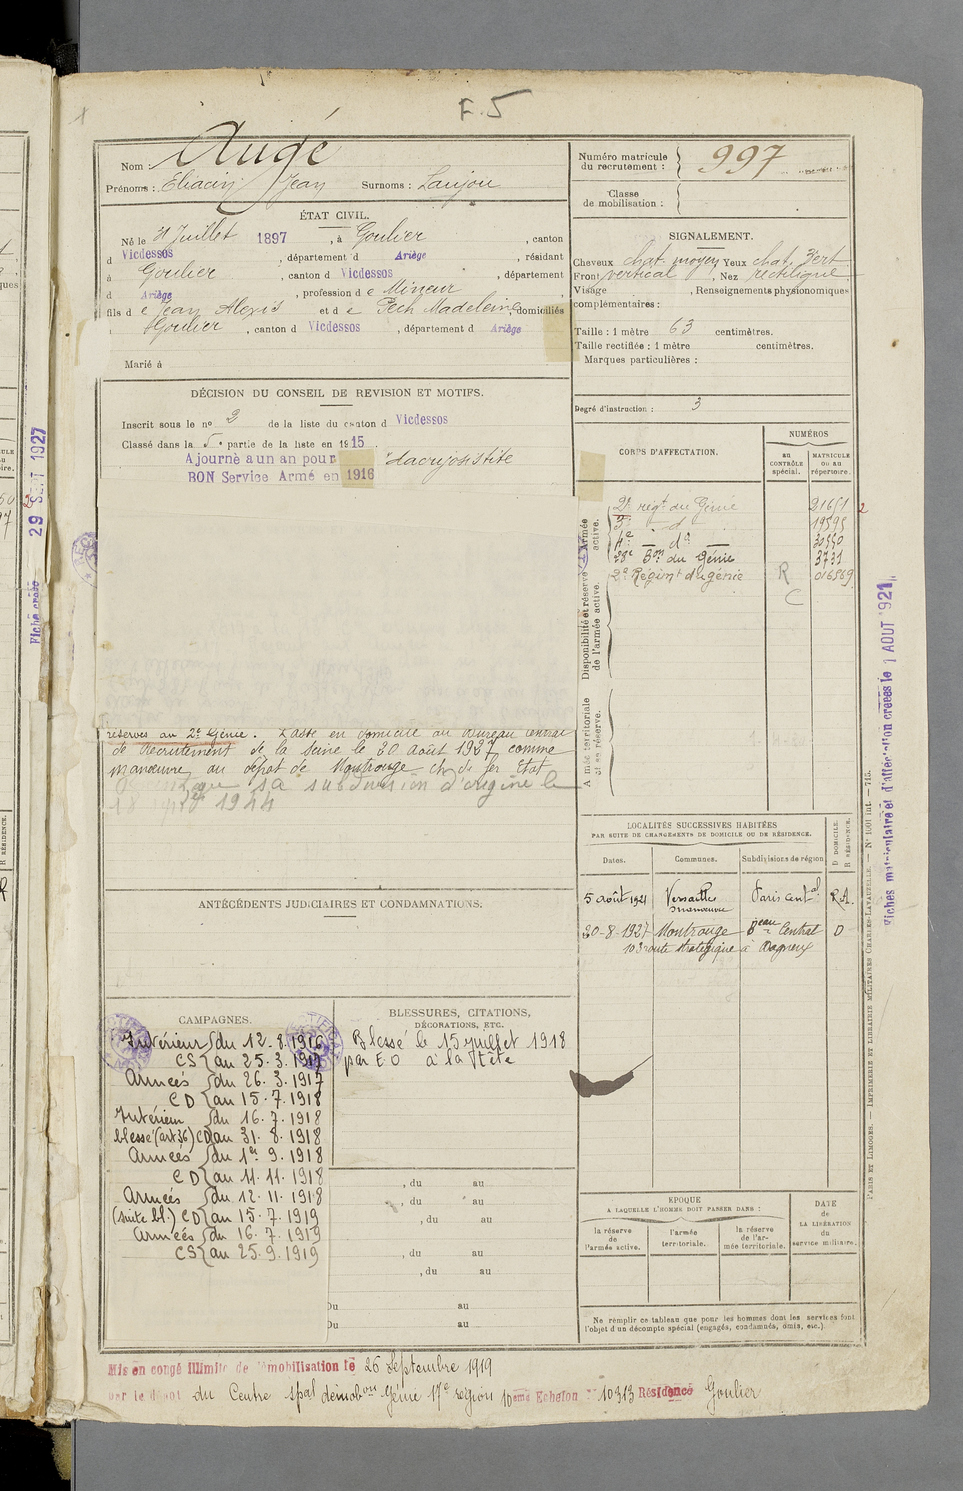 F. 5
Nom : Augé
Prénoms : Eliacin Jean Surnoms : Laujou
ÉTAT CIVIL.
Né le 31 Juillet 1897, à Goulier, canton
d Vicdessos, département d Ariège, résidant
à Goulier, canton d Vicdessos, département
d Ariège, profession d e Mineur
fils d e Jean Alexis et d e Pech Madeleine, domiciliés
Goulier, canton d Vicdessos, département d Ariège
Marié à
DÉCISION DU CONSEIL DE REVISION ET MOTIFS.
Inscrit sous le n° 2 de la liste du canton d Vicdessos
Classé dans la 5e partie de la liste en 1915.
Ajourné a un an pour dacryosistite
BON Service Armé en 1916
réserves au 2e Génie. Passé en domicile au Bureau central
de Recrutement de la Seine le 30 Août 1927 comme
manœuvre au dépôt de Montrouge ch. de fer Etat
sa subdivision d'origine le
1944
ANTÉCÉDENTS JUDICIAIRES ET CONDAMNATIONS.
CAMPAGNES.
Intérieur du 12.8.1916
CS au 25.3.1917
Armées du 26.3.1917
CD au 15.7.1918
Intérieur du 16.7.1918
blessé (art 36) CD au 31.8.1918
Armées du 1er 9.1918
CD au 11.11.1918
Armées du 12.11.1918
(suite bl.) CD au 15.7.1919
Armées du 16.7.1919
CS au 25.9.1919
BLESSURES, CITATIONS,
DÉCORATIONS, ETC.
Blessé le 15 juillet 1918
par E.O à la tête
, du au
, du au
, du au
, du au
, du au
Du au
Du au
Numéro matricule
du recrutement : 997
Classe
de mobilisation :
SIGNALEMENT.
Cheveux chat. moyen Yeux chat. Vert
Front vertical, Nez rectiligne
Visage , Renseignements physionomiques
complémentaires :
Taille : 1 mètre 63 centimètres.
Taille rectifiée : 1 mètre centimètres.
Marques particulières :
Degré d'instruction : 3
CORPS D'AFFECTATION.
NUMÉROS
au CONTRÔLE spécial.
MATRICULE ou au répertoire.
Armée active.
2e régt du Génie 21651
3e d° 19595
4e d°
28e Bon du Génie 3731
Disponibilité et réserve de l'armée active.
2e Régimt du génie R 016569
C
Armée territoriale et sa réserve.
LOCALITÉS SUCCESSIVES HABITÉES
PAR SUITE DE CHANGEMENTS DE DOMICILE OU DE RÉSIDENCE.
Dates. Communes. Subdivisions de région
D DOMICILE. R RÉSIDENCE.
5 août 1921 Versailles Paris cental R.A.
manœuvre
30-8-1927 Montrouge Beau Central D
103 route stratégique à Bagneux
EPOQUE
A LAQUELLE L'HOMME DOIT PASSER DANS :
la réserve de l'armée active.
l'armée territoriale.
la réserve de l'armée territoriale.
DATE de LA LIBÉRATION du service militaire.
Ne remplir ce tableau que pour les hommes dont les services font
l'objet d'un décompte spécial (engagés, condamnés, omis, etc.).
Mis en congé illimité de démobilisation le 26 Septembre 1919
par le dépôt du Centre spal démobon Génie 17e région 10eme Echelon n° 10313 Résidence Goulier
PARIS ET LIMOGES. — IMPRIMERIE ET LIBRAIRIE MILITAIRES CHARLES-LAVAUZELLE. — N° 1001 int. — 715.
Fiches matriculaire et d'affectation créées le 1 AOUT 1921
Fiche créée 29 SEPT 1927